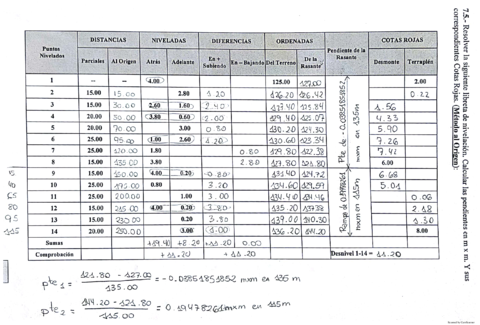 7.5.- Resolver la siguiente libreta de nivelación. Calcular las pendientes en m x m. Y sus
correspondientes Cotas Rojas. (Método al Origen):
Puntos Nivelados DISTANCIAS NIVELADAS DIFERENCIAS ORDENADAS Pendiente de la Rasante COTAS ROJAS
Parciales Al Origen Atrás Adelante En + Subiendo En – Bajando Del Terreno De la Rasante Desmonte Terraplén
1 -- -- 4.00 125.00 127.00 2.00
2 15.00 15.00 2.80 1.20 126.20 126.42 0.22
3 15.00 30.00 2.60 1.60 2.40 127.40 125.84 1.56
4 20.00 50.00 3.80 0.60 2.00 129.40 125.07 4.33
5 20.00 70.00 3.00 0.80 130.20 124.30 5.90
6 25.00 95.00 1.00 2.60 1.20 130.60 123.34 7.26
7 25.00 120.00 1.80 0.80 129.80 122.38 7.42
8 15.00 135.00 3.80 2.80 127.80 121.80 6.00
9 15.00 150.00 4.00 0.20 0.80 131.40 124.72 6.68
10 25.00 175.00 0.80 3.20 134.60 129.59 5.01
11 25.00 200.00 1.00 3.00 134.40 134.46 0.06
12 15.00 215.00 4.00 0.20 0.80 135.20 137.38 2.18
13 15.00 230.00 0.20 3.80 139.00 140.30 1.30
14 20.00 250.00 3.00 1.00 136.20 144.20 8.00
Pte - 0.03851851852 mxm en 135m
Sumas +19.40 +8.20 +11.20 0.00
Comprobación + 11.20 + 11.20 Desnivel 1-14 = 11.20
15
40
65
80
95
115
pte 1 = 121.80 - 127.00 / 135.00 = - 0.03851851852 mxm en 135 m
pte 2 = 144.20 - 121.80 / 115.00 = 0.19478261 mxm en 115m